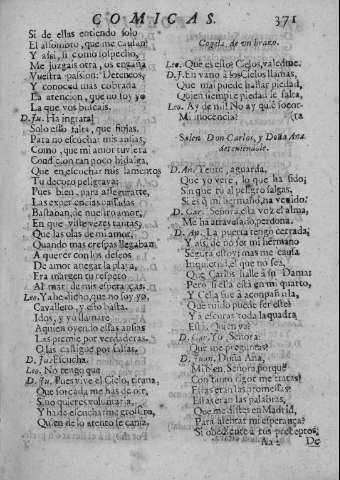 COMICAS. 371
Si de ellas entiendo solo
El assombro, que me causan?
Y assi, si como sospecho,
Me juzgais otra, os engaña
Vuestra passion: Deteneos,
Y conoced mas cobrada
La atencion, que no soy yo
La que vos buscais.
D. Ju. Ha ingrata!
Solo esso falta, que finjas,
Para no escuchar mis ansias,
Como, que mi amor tuviera
Condicion tan poco hidalga,
Que en escuchar mis lamentos
Tu decoro peligrara:
Pues bien, para assegurarte,
Las experiencias passadas
Bastaban, de nuestro amor,
En que vi diversas veces tantas,
Que las olas de mi amor,
Quando mas crespas llegaban
A querer con los deseos
De amor anegar la playa,
Era margen tu respeto
Al mar de mis esperanças.
Leo. Ya he dicho, que no soy yo,
Cavallero, y esto basta.
Idos, y yo llamarè
A quien oyendo essas ansias
Las premie por verdaderas,
O las castigue por falsas.
D. Ju. Escucha.
Leo. No tengo que
D. Ju. Pues vive el Cielo, tirana,
Que forçada me has de oir,
Si no quieres voluntaria,
Y ha de escucharme grossera,
Quien de lo atento se cansa.
Cogela de un brazo.
Leo. Què es esto? Cielos, valedme.
D. J. En vano à los Cielos llamas,
Que mal puede hallar piedad,
Quien siempre piedad le falta,
Leo. Ay de mi! No ay quien socor-
Mi inocencia? (ra
Salen Don Carlos, y Doña Ana
deteniendole.
D. An. Tente, aguarda,
Que yo verè, lo que ha sido,
Sin que tu al peligro salgas,
Si es q̃ mi hermano, ha venido.
D. Car. Señora, esta voz el alma,
Me ha atravesado, perdona.
D. An. La puerta tengo cerrada,
Y assi, de no ser mi hermano
Segura estoy; mas me causa
Inquietud, el que no sea,
Que Carlos halle à su Dama:
Pero si ella està en mi quarto,
Y Celia fue à acompañarla,
Què ruido puede ser este?
Y à escuras toda la quadra
Està. Quien va?
D. Car. Yo, Señora:
Què me preguntas?
D. Juan. Doña Ana,
Mi bien, Señora, porquè
Con tanto rigor me tratas?
Estas eran las promessas?
Estas eran las palabras,
Que me diste en Madrid,
Para alentar mi esperança?
Si obediente à tus preceptos,
Aa 2 De